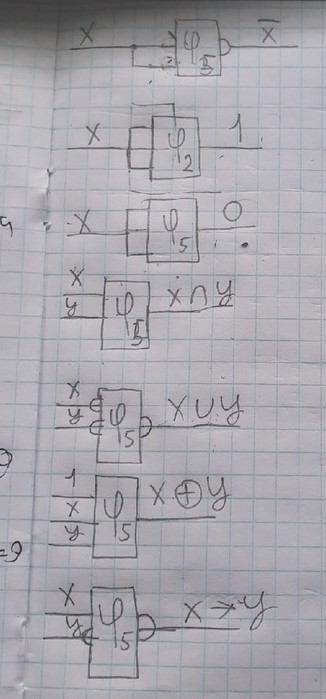 x φ5 x̅
x φ2 1
x φ5 0
x
y φ5 x∩y
x
y φ5 x∪y
1
x φ5 x⊕y
y
x
y φ5 x→y